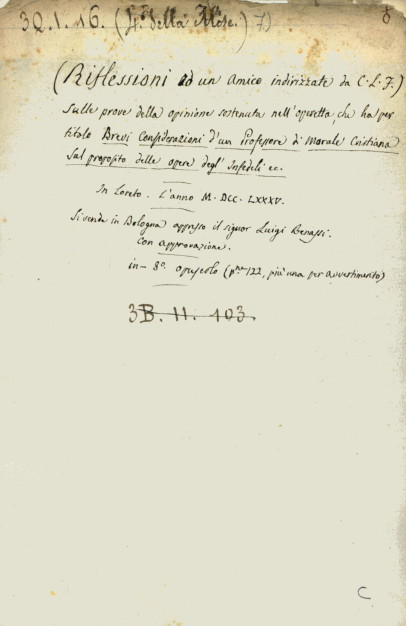 3Q.1.16. (4.º della Misc.) 7)
8
(Riflessioni ad un Amico indirizzate da C.L.F.)
sulle prove della opinione sostenuta nell'operetta, che ha per
titolo Brevi Considerazioni d'un Professore di Morale Cristiana
sul proposito delle opere degl'Infedeli ec.
In Loreto. L'anno M.DCC.LXXXV.
Si vende in Bologna appresso il signor Luigi Benassi.
Con approvazione.
in-8º. opuscolo (pne 122, più una per avvertimento)
3B. 11. 103.
C